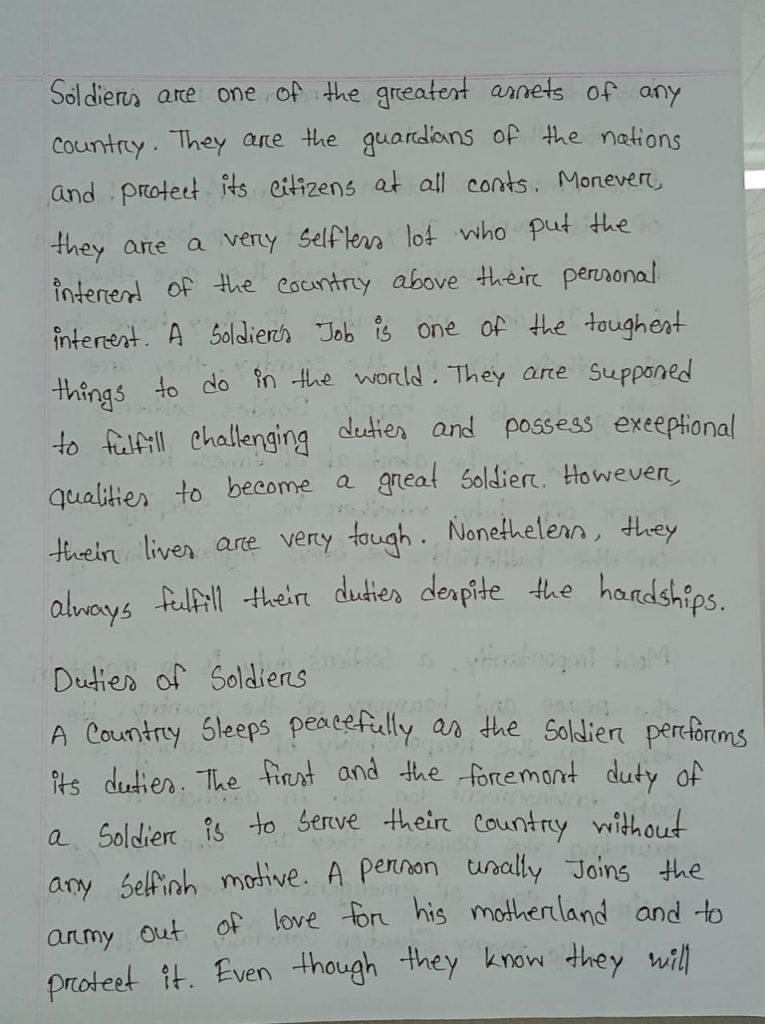 Soldiers are one of the greatest assets of any
country. They are the guardians of the nations
and protect its citizens at all costs. Morever,
they are a very selfless lot who put the
interest of the country above their personal
interest. A Soldiers Job is one of the toughest
things to do in the world. They are supposed
to fulfill challenging duties and possess exceptional
qualities to become a great Soldier. However,
their lives are very tough. Nonetheless, they
always fulfill their duties despite the hardships.
Duties of Soldiers
A Country Sleeps peacefully as the Soldier performs
its duties. The first and the foremost duty of
a Soldier is to Serve their country without
any Selfish motive. A person usally Joins the
army out of love for his motherland and to
protect it. Even though they know they will